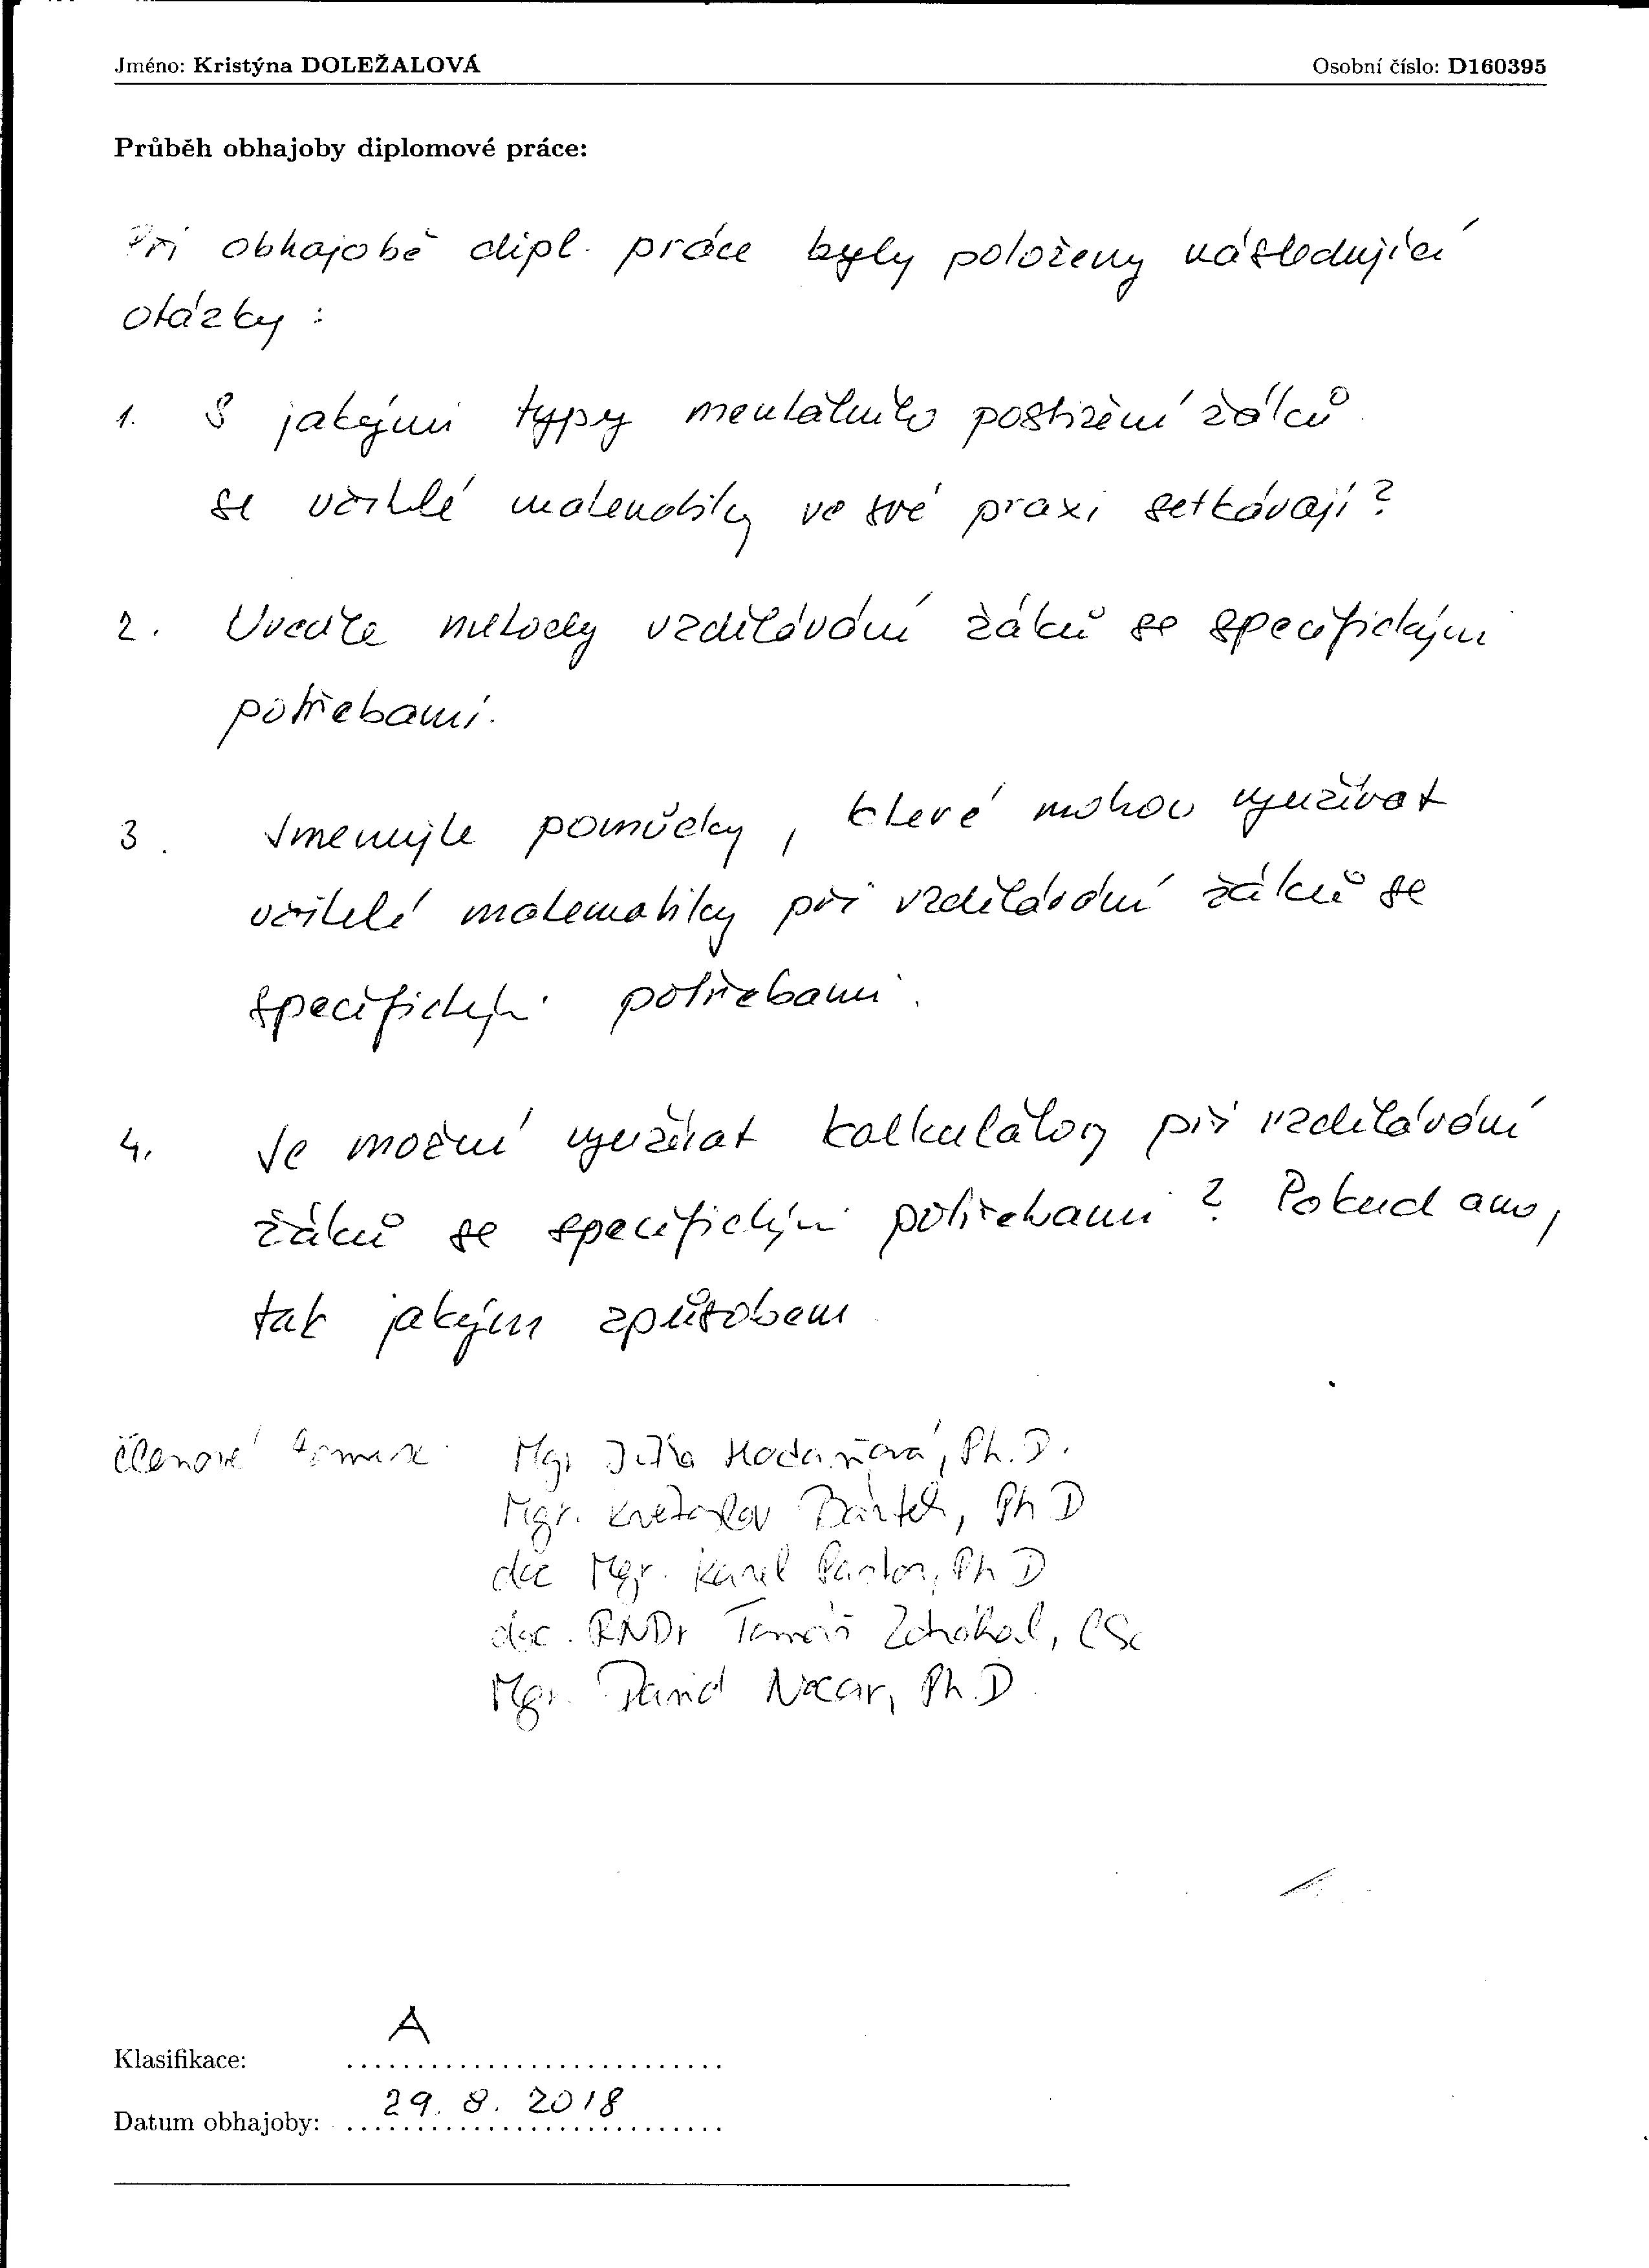 Jméno: Kristýna DOLEŽALOVÁ Osobní číslo: D160395
Průběh obhajoby diplomové práce:
Při obhajobě dipl. práce byly položeny následující
otázky:
1. S jakými typy mentálního postižení žáků
se učitelé matematiky ve své praxi setkávají?
2. Uveďte metody vzdělávání žáků se specifickými
potřebami.
3. Jmenujte pomůcky, které mohou využívat
učitelé matematiky při vzdělávání žáků se
specifickými potřebami.
4. Je možné využívat kalkulátory při vzdělávání
žáků se specifickými potřebami? Pokud ano,
tak jakým způsobem
členové komise Mgr. Jitka Hodaňová, Ph.D.
Mgr. Květoslav Bártek, Ph D
doc Mgr. Karel Pastor, Ph D
doc. RNDr Tomáš Zdráhal, CSc
Mgr. David Nocar, Ph.D.
A
Klasifikace: ...........................
29. 8. 2018
Datum obhajoby: ...........................